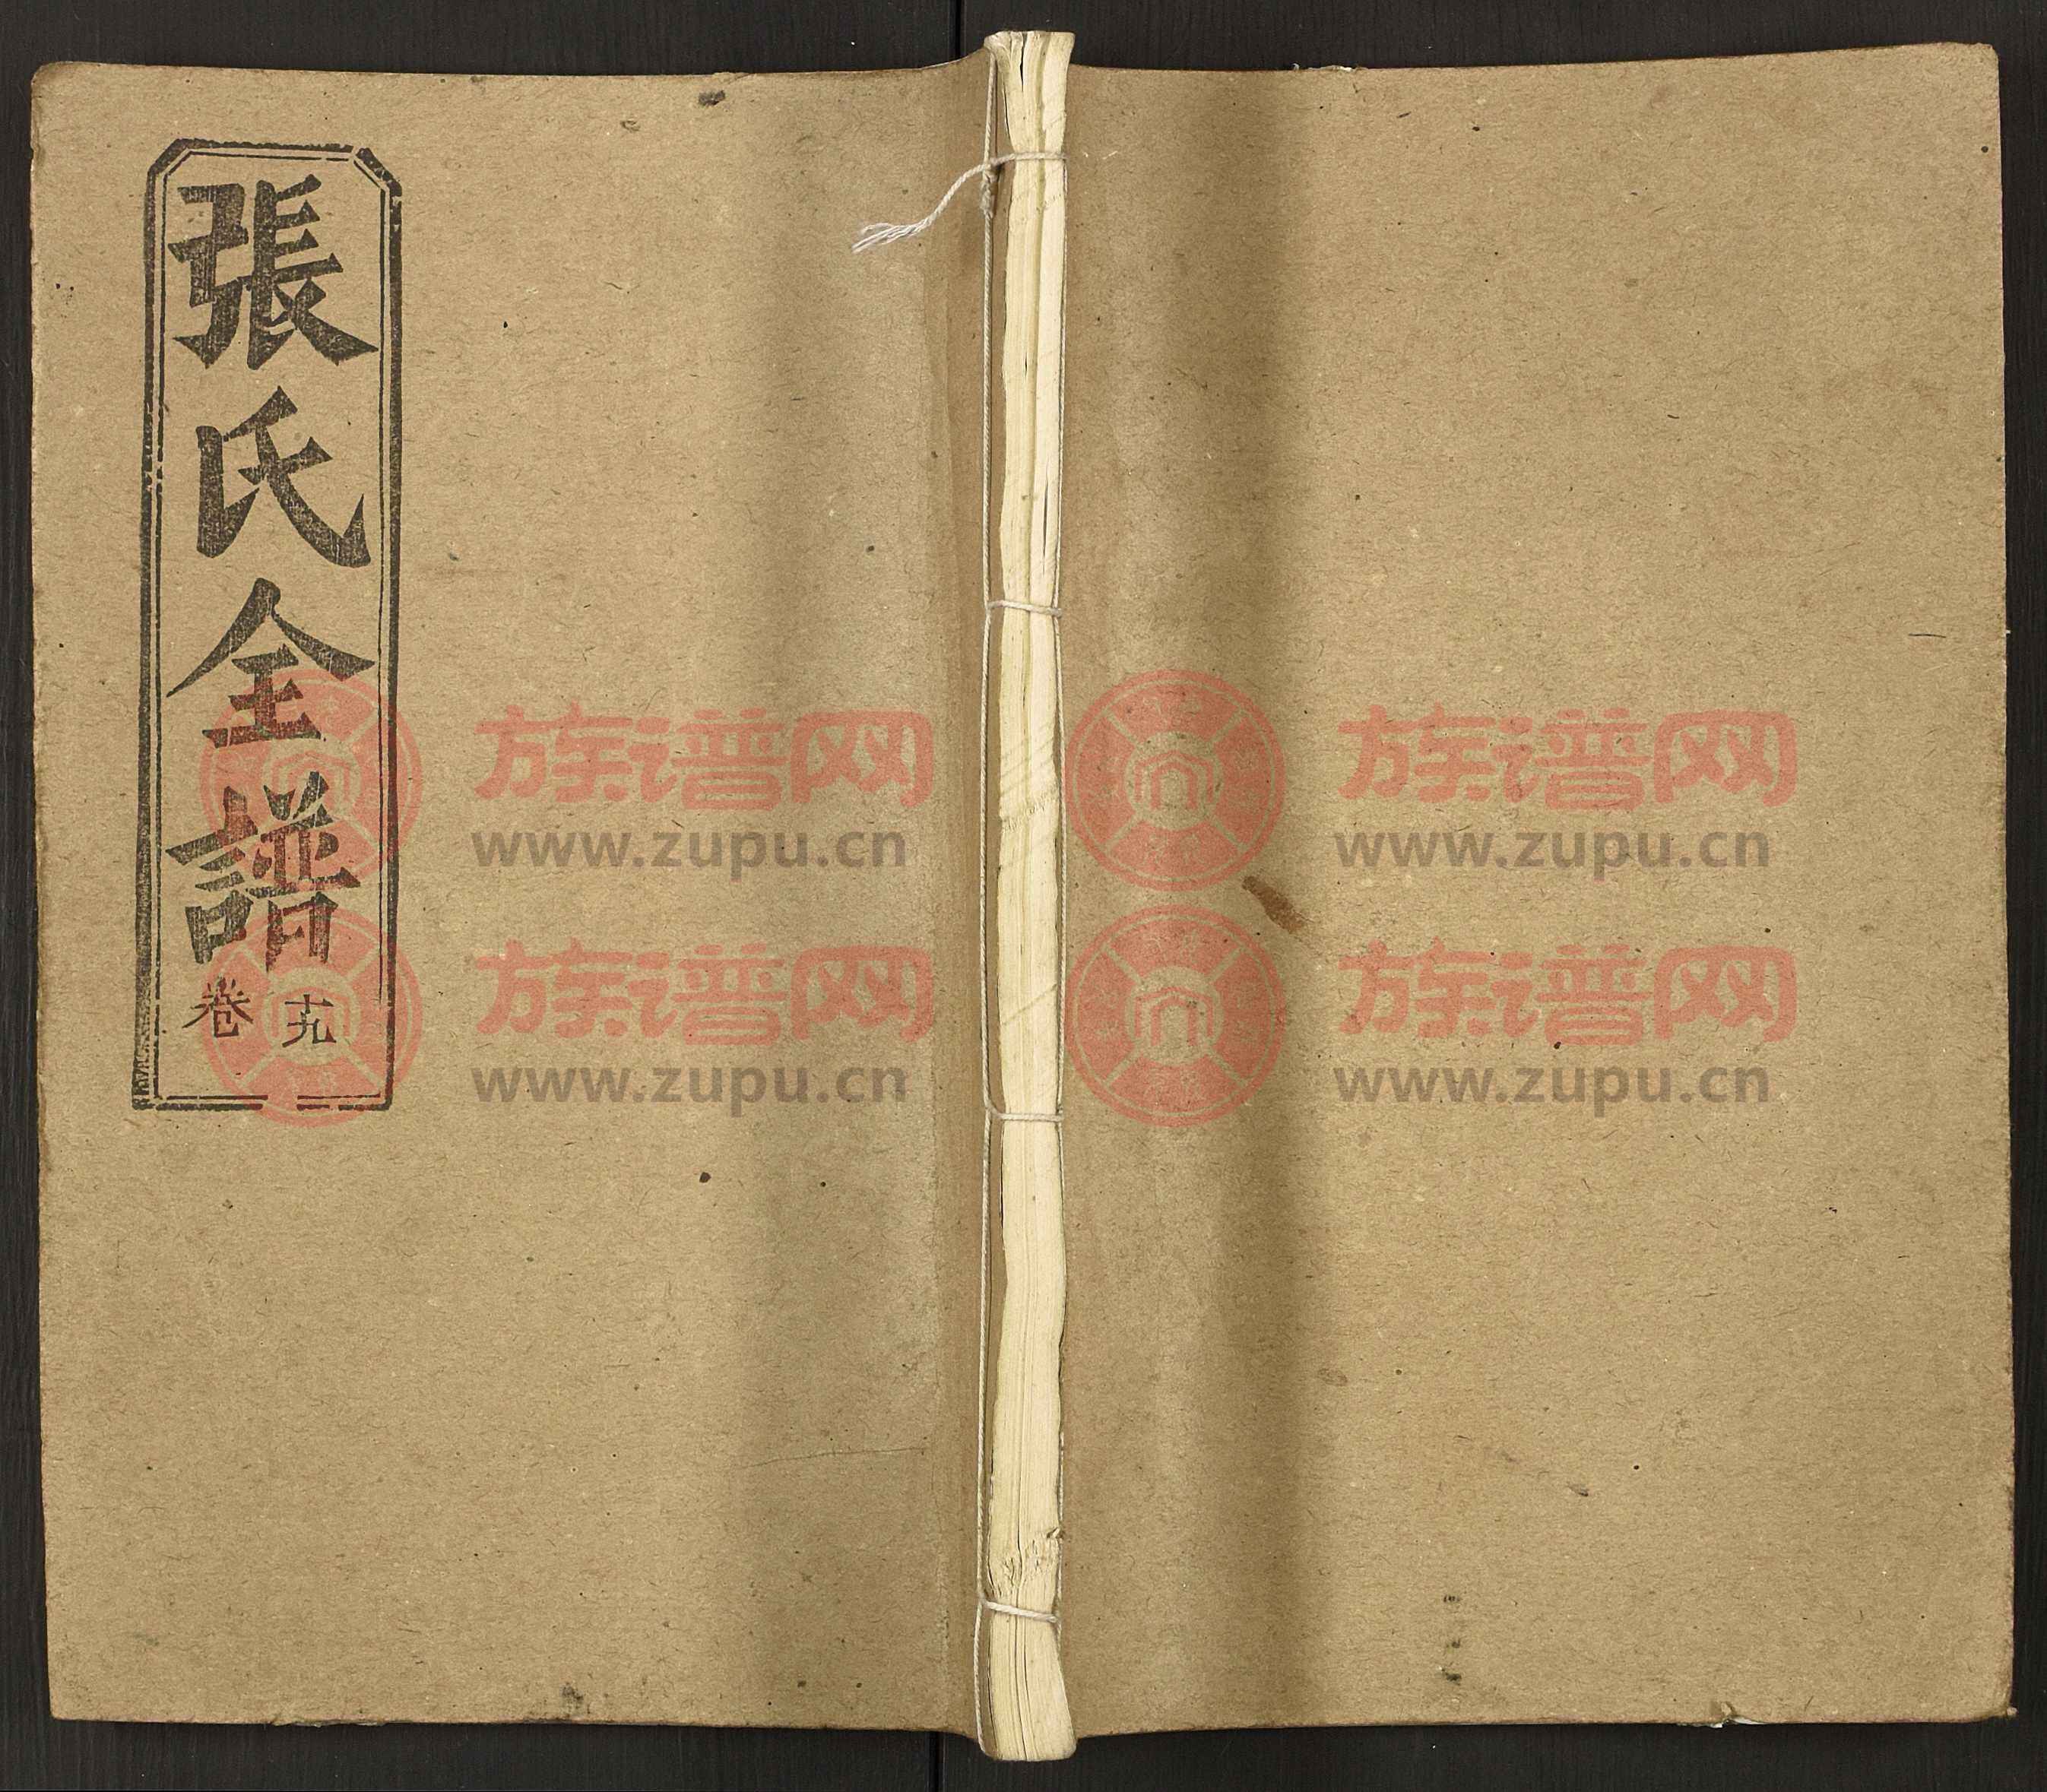 張氏全譜
卷十九
族谱网
www.zupu.cn
族谱网
www.zupu.cn
族谱网
www.zupu.cn
族谱网
www.zupu.cn